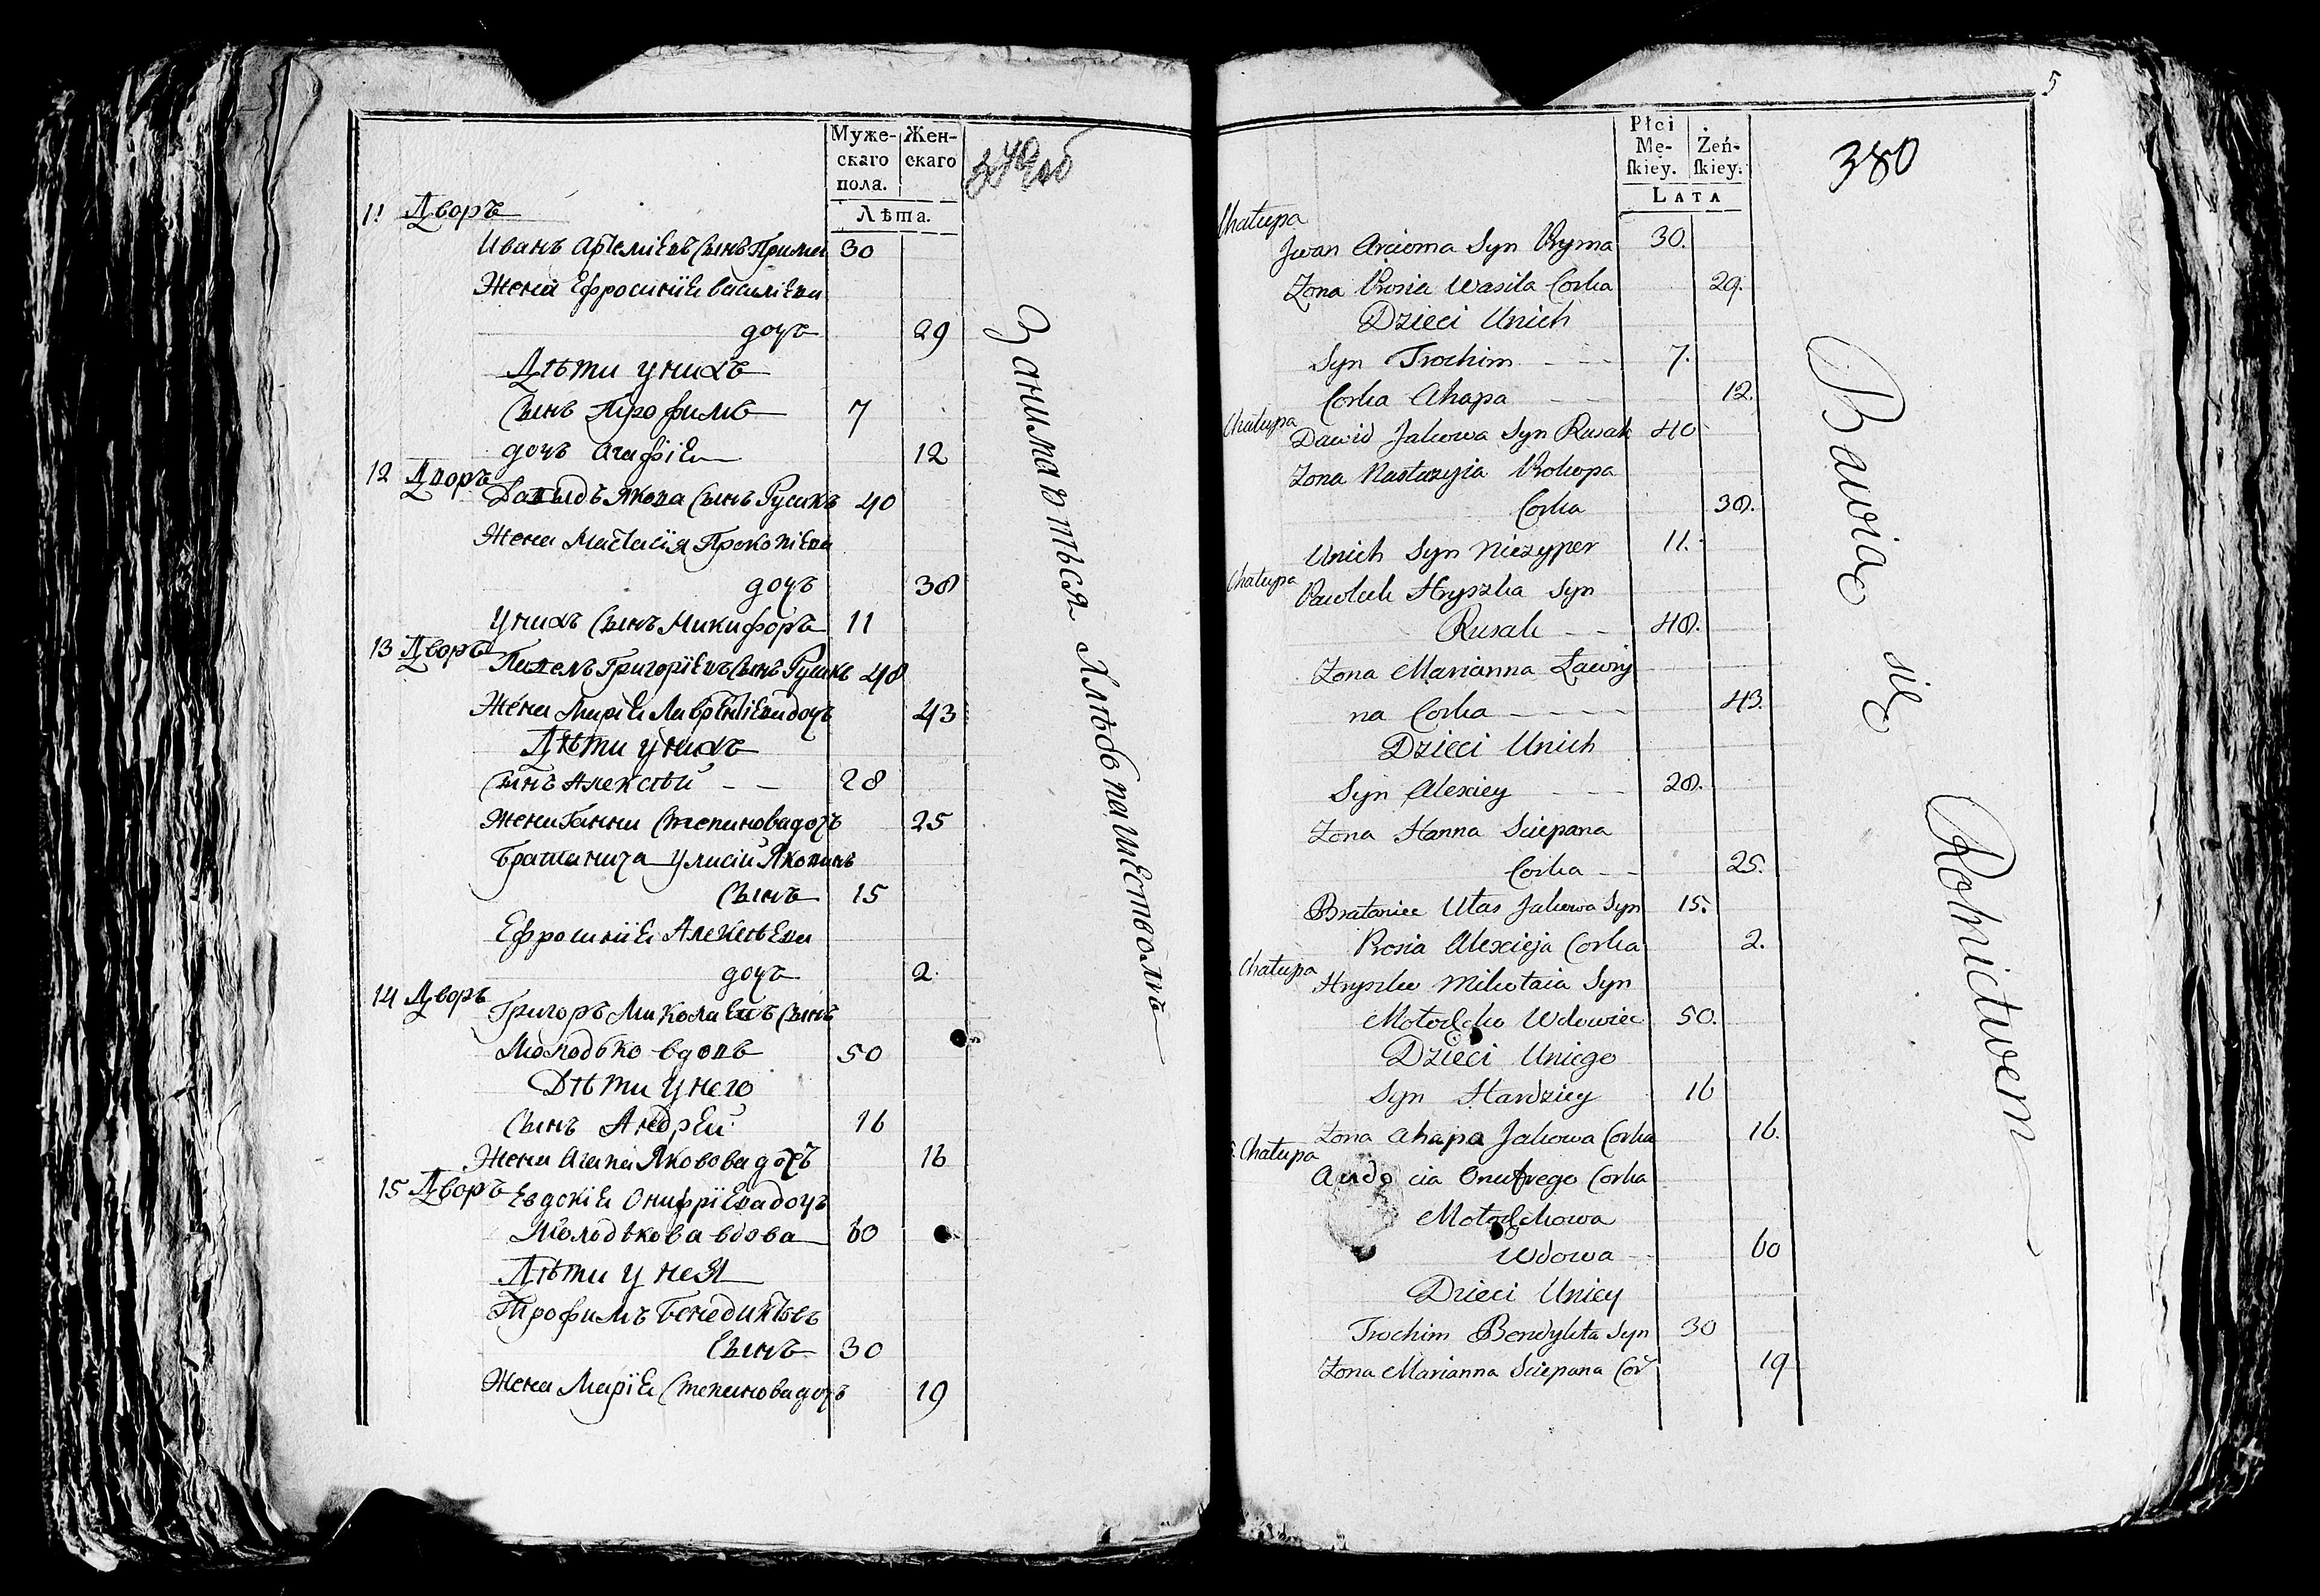 Муже-
скаго
пола.
Жен-
скаго
Лѣта.
11 Дворъ
Иванъ Артемиевъ Сынъ Прима 30
Жена Ефросиния Василиева
дочь 29
Дѣти у нихъ
Сынъ Трофимъ 7
дочь Агафія 12
12 Дворъ
Давыдъ Якова Сынъ Русакъ 40
Жена Настасія Прокопіева
дочь 38
У нихъ Сынъ Микифоръ 11
13 Дворъ
Павелъ Григоріевъ Сынъ Русакъ 48
Жена Марія Лаврентіева дочь 43
Дѣти у нихъ
Сынъ Алексѣй - - 28
Жена Ганна Степанова дочь 25
Братанича Яковинъ
Сынъ 15
Ефросинія Алексѣева
дочь 2
14 Дворъ
Григоръ Миколаевъ Сынъ
Молодько вдовъ 50
Дѣти у него
Сынъ Андрей 16
Жена Агапа Яковова дочь 16
15 Дворъ Евдокія Онифріева дочь
Молодькова вдова 60
Дѣти у нея
Трофимъ Бенедиктовъ
Сынъ 30
Жена Марія Степанова дочь 19
Занимаются Хлѣбопашествомъ
5
380
Płci
Mę-
skiey.
Żeń-
skiey.
LATA
Chałupa
Jwan Arcioma Syn Pryma 30.
Zona Prosia Wasila Corka 29.
Dzieci Unich
Syn Trochim - - - 7.
Corka Ahapa 12.
Chałupa
Dawid Jakowa Syn Rusak 40
Zona Nastazyia Prokopa
Corka 38.
Unich Syn Niczyper 11.
Chałupa
Pawluk Hryszka Syn
Rusak - - 48.
Zona Marianna Ławry
na Corka - - - - 43.
Dzieci Unich
Syn Alexiey - - - 28.
Zona Hanna Sciepana
Corka - - 25.
Brataniec Ułas Jakowa Syn 15.
Prosia Alexieja Corka 2.
Chałupa
Hryszko Mikołaia Syn
Mołodko Wdowiec 50.
Dzieci Uniego
Syn Handziey 16
Zona Ahapa Jakowa Corka 16.
Chałupa
Audocia Onufrego Corka
Mołodkowa
Wdowa 60
Dzieci Uniey
Trochim Bendykta Syn 30
Zona Marianna Sciepana Cor 19
Bawią się Rolnictwem